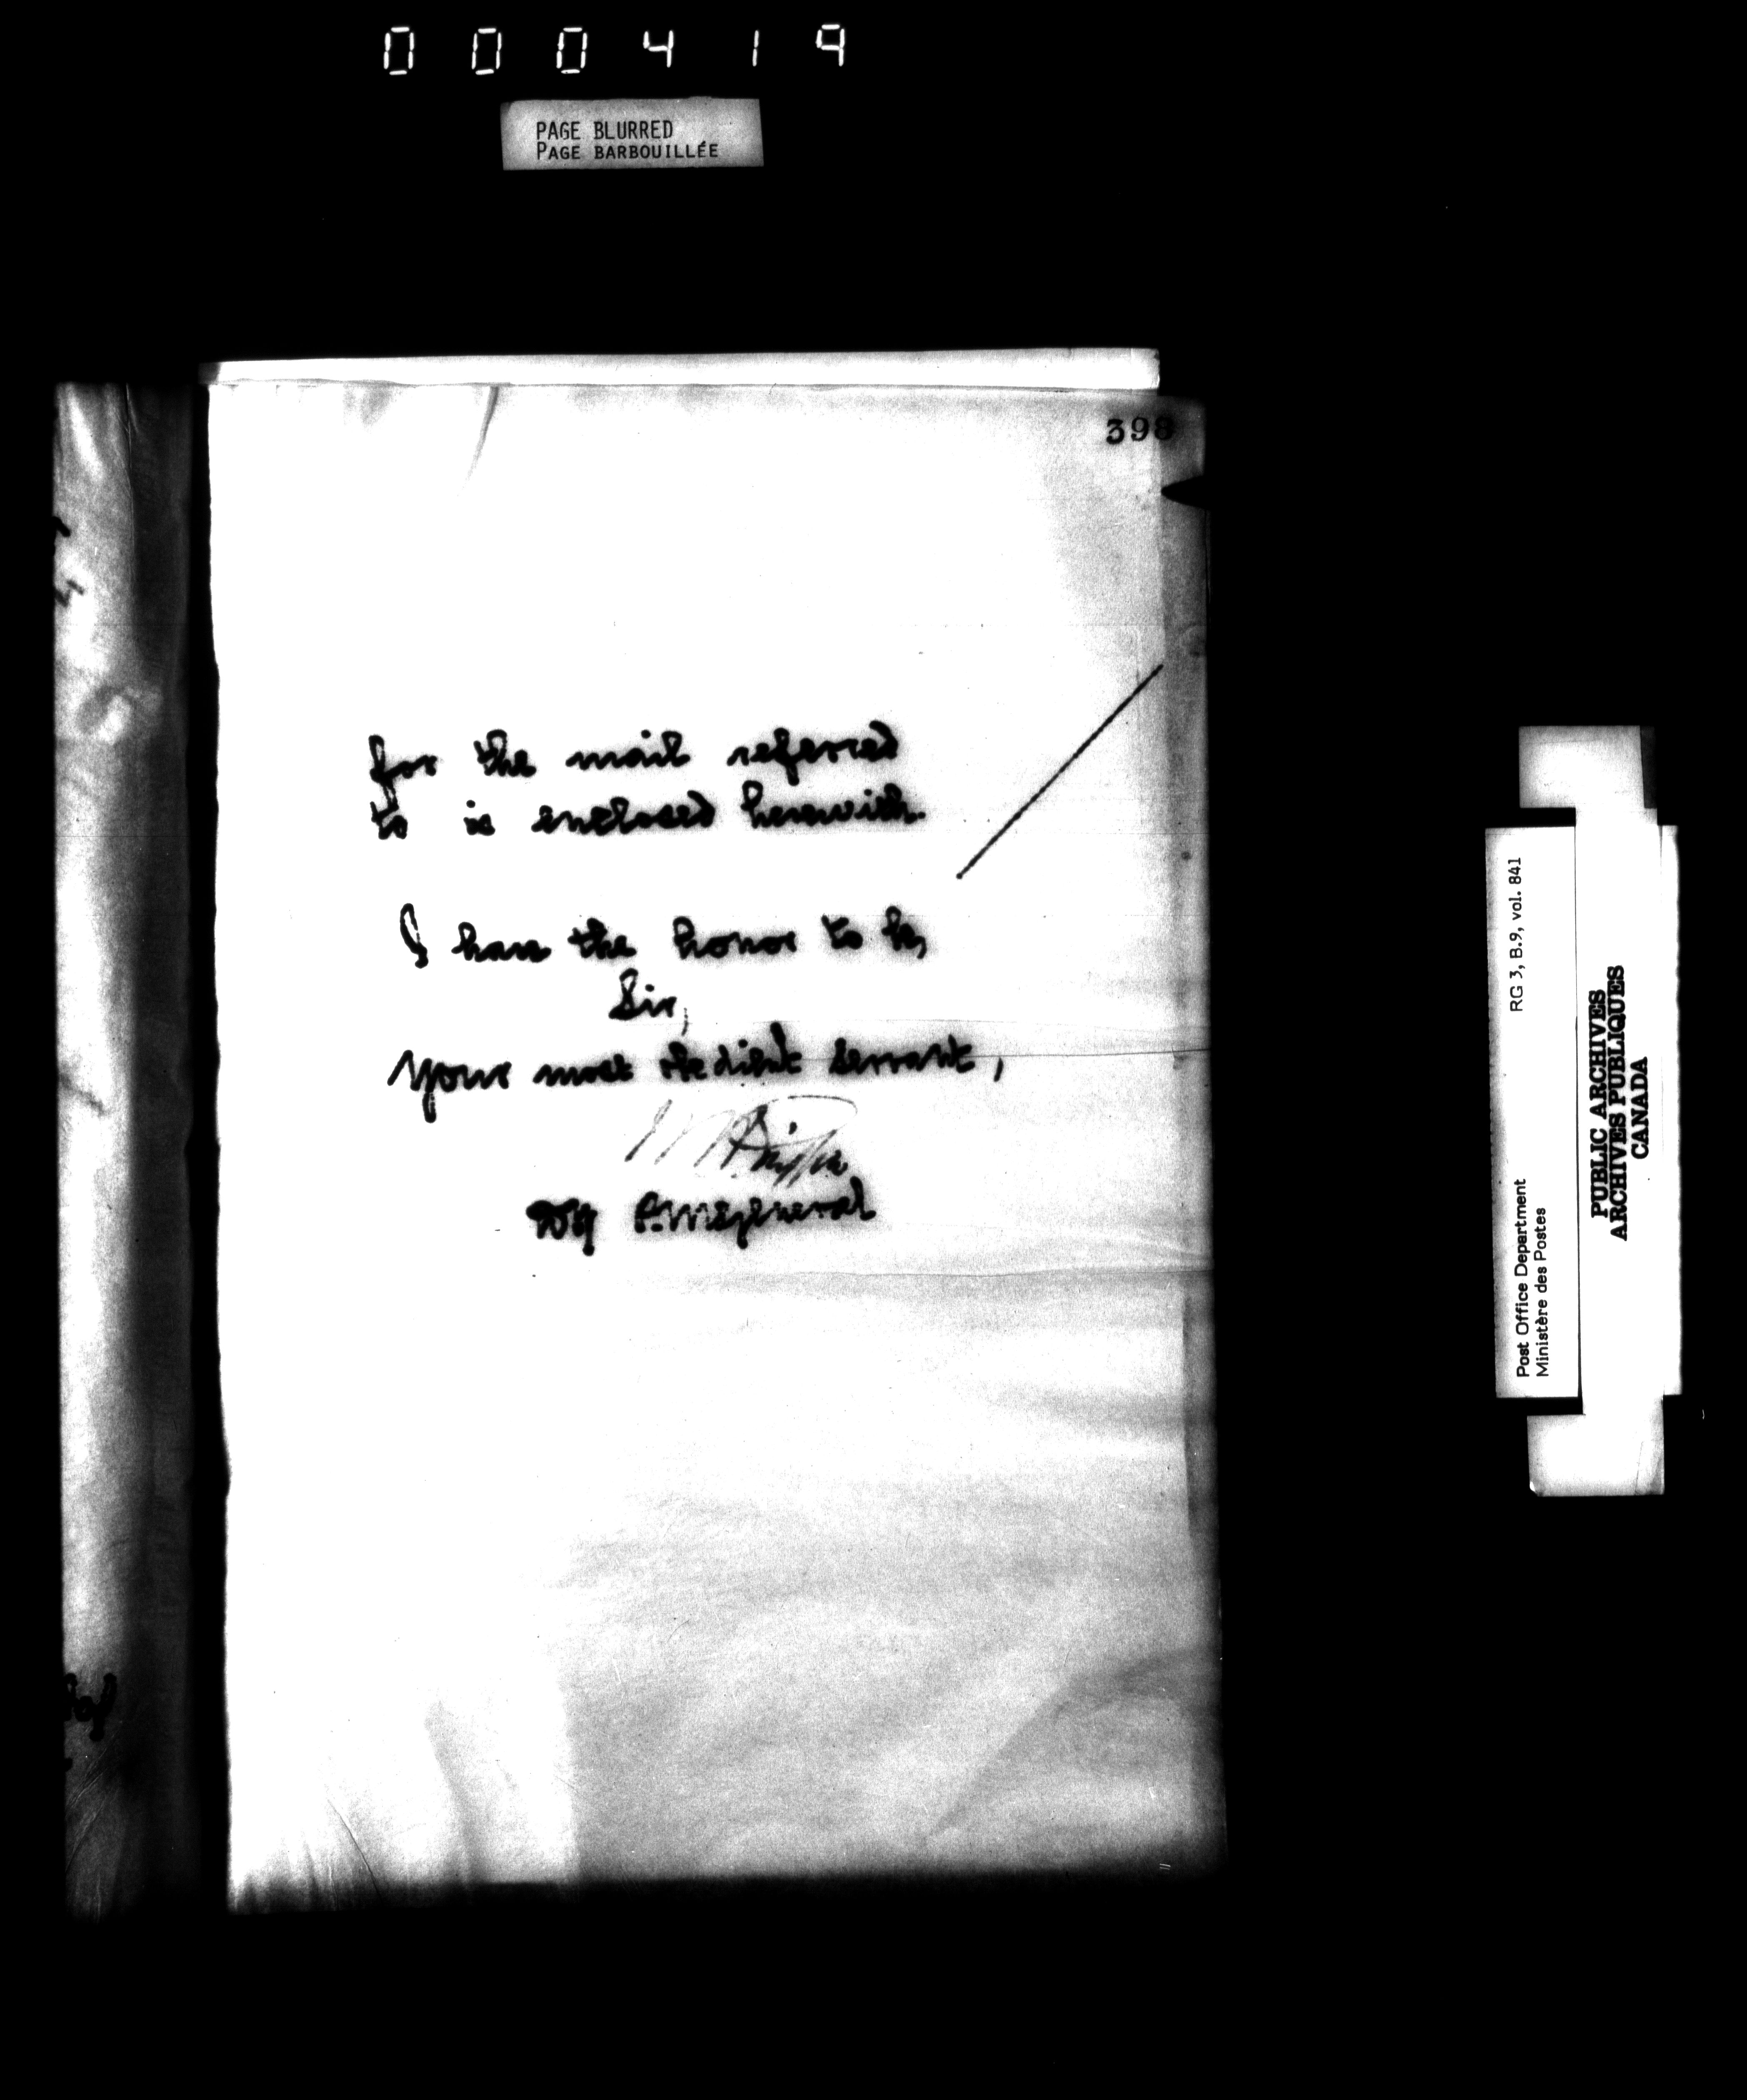 000419
PAGE BLURRED
PAGE BARBOUILLÉE
398
for the mail referred
to is enclosed herewith.
I have the honor to be,
Sir,
Your most obedient servant,
Griffin
Dy P.M. General
RG 3, B.9, vol. 841
Post Office Department
Ministère des Postes
PUBLIC ARCHIVES
ARCHIVES PUBLIQUES
CANADA